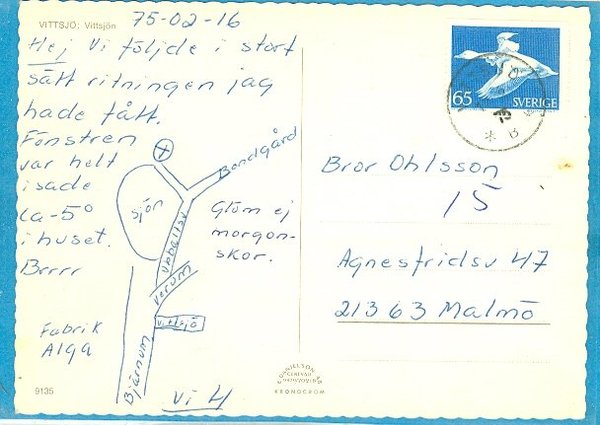 VITTSJÖ: Vittsjön
75-02-16
Hej Vi följde i stort
sätt ritningen jag
hade fått.
Fönstren
var helt
isade
ca-5°
i huset.
Brrrr
Bondgård
sjön
Glöm ej
morgon-
skor.
Verum
Vittsjö
Bjärnum
Fabrik
Alga
Vi 4
9135
65 SVERIGE
Bror Ohlsson
15
Agnesfridsv 47
21363 Malmö
KRONOCROM